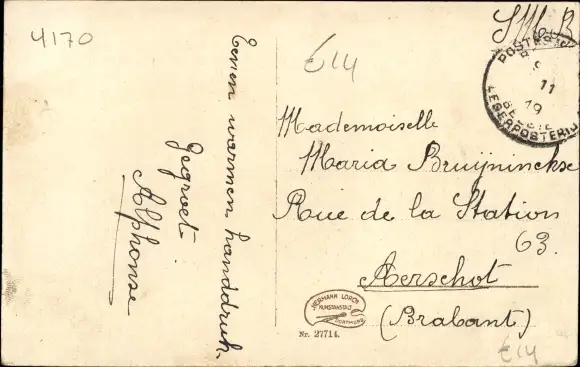 4170
Eenen warmen handdruk
Gegroet
Alphonse
€14
S.M.B
POSTES
9
11
19
BELGIE
LEGERPOSTERIJ
Mademoiselle
Maria Bruijninckx
Rue de la Station
63.
Aerschot
(Brabant)
HERMANN LORCH
KUNSTANSTALT
DORTMUND
Nr. 27714.
€14